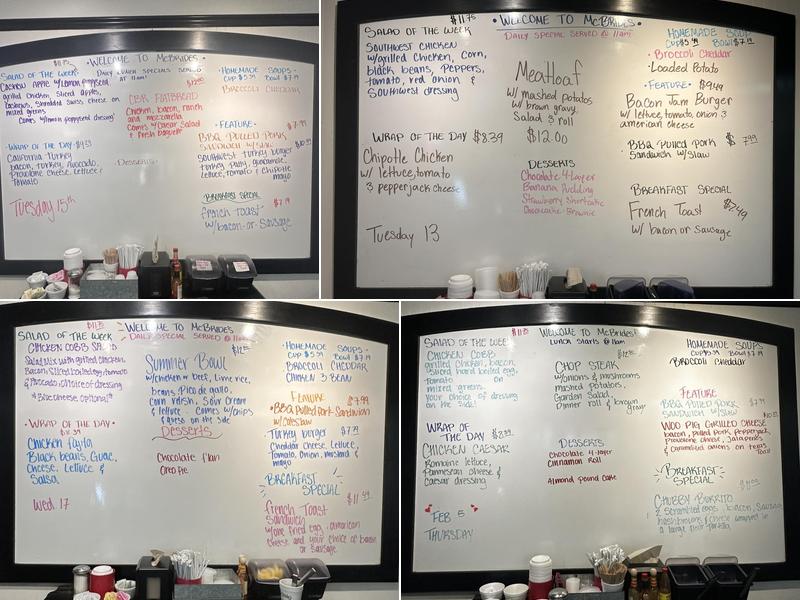 $11.75
WELCOME TO MCBRIDES
SALAD OF THE WEEK
DAILY LUNCH SPECIALS SERVED
AT 11am
grilled chicken, sliced apples,
Shredded Swiss cheese on
mixed greens
CBR FLATBREAD
Chicken, bacon, ranch
and mozzarella
Comes w/Caesar Salad
HOMEMADE SOUPS
CUP $5.99 BOWL $7.19
BROCCOLI CHEDDAR
FEATURE:
$7.99
BBQ PULLED PORK
SANDWICH W/SLAW
$10.99
SOUTHWEST TURKEY BURGER
turkey patty, guacamole,
lettuce, tomato & chipotle
mayo
WRAP OF THE DAY
California Turkey
bacon, turkey, avocado,
provolone cheese, lettuce &
tomato
DESSERTS
Tuesday 15th
BREAKFAST SPECIAL
$7.19
french toast
w/bacon or Sausage
$11.75
SALAD OF THE WEEK
SOUTHWEST CHICKEN
w/grilled chicken, corn,
black beans, Peppers,
tomato, red onion &
Southwest dressing
WRAP OF THE DAY $8.39
Chipotle Chicken
w/ lettuce, tomato
& pepperjack cheese
Tuesday 13
• WELCOME TO MCBRIDES •
DAILY SPECIAL SERVED @ 11am
Meatloaf
w/ mashed potatoes
w/ brown gravy,
Salad & roll
$12.00
DESSERTS
Chocolate 4-Layer
Banana Pudding
Strawberry Shortcake
Cheesecake Brownie
HOMEMADE SOUP
CUP $5.99 BOWL $7.19
• Broccoli Cheddar
• Loaded Potato
• FEATURE • $9.49
Bacon Jam Burger
w/ lettuce, tomato, onion &
american cheese
• BBQ Pulled Pork $7.99
Sandwich w/Slaw
BREAKFAST SPECIAL
French Toast $7.49
w/ bacon or Sausage
SALAD OF THE WEEK
CHICKEN COBB
Salad Mix with grilled chicken,
Bacon, Sliced boiled egg, tomato
& Avocado, choice of dressing
*Blue cheese optional*
• WRAP OF THE DAY •
Chicken fajita
Black beans, Guac,
Cheese, Lettuce &
Salsa
Wed. 17
WELCOME TO MCBRIDES
DAILY SPECIAL SERVED @ 11am
Summer Bowl
w/chicken or beef, lime rice,
beans, Pico de gallo,
Corn salsa, Sour Cream
& lettuce. Comes w/chips
& queso on the side
Desserts
Chocolate flan
Oreo Pie
• HOMEMADE SOUPS •
CUP $5.99 BOWL $7.19
BROCCOLI CHEDDAR
CHICKEN & BEAN
FEATURE
$7.99
• BBQ Pulled Pork Sandwich
w/Coleslaw
• Turkey burger
Cheddar cheese, Lettuce,
Tomato, Onion, mustard &
mayo
BREAKFAST
SPECIAL
$11.49
french Toast
Sandwich
w/one fried egg, american
Cheese and your choice of bacon
or Sausage
SALAD OF THE WEEK
CHICKEN COBB
grilled chicken, bacon,
sliced hard boiled egg,
tomato on
mixed greens
your choice of dressing
on the side!
WRAP OF
THE DAY
CHICKEN CAESAR
Romaine lettuce,
Parmesan cheese &
Caesar dressing
FEB 5
THURSDAY
WELCOME TO MCBRIDES!
LUNCH STARTS @ 11am
CHOP STEAK
w/onions & mushrooms
mashed potatoes,
Garden Salad,
Dinner roll & brown
gravy
DESSERTS
Chocolate 4-layer
Cinnamon Roll
Almond pound Cake
HOMEMADE SOUPS
CUP $5.99 BOWL $7.19
BROCCOLI CHEDDAR
FEATURE
BBQ PULLED PORK
SANDWICH W/SLAW
WOO PIG GRILLED CHEESE
bacon, pulled pork, pepperjack,
provolone cheese, Jalapenos
& caramelized onions on texas
Toast
BREAKFAST
SPECIAL
CHUBBY BURRITO
2 scrambled eggs, bacon, Sausage,
hashbrowns & cheese wrapped in
a large flour tortilla